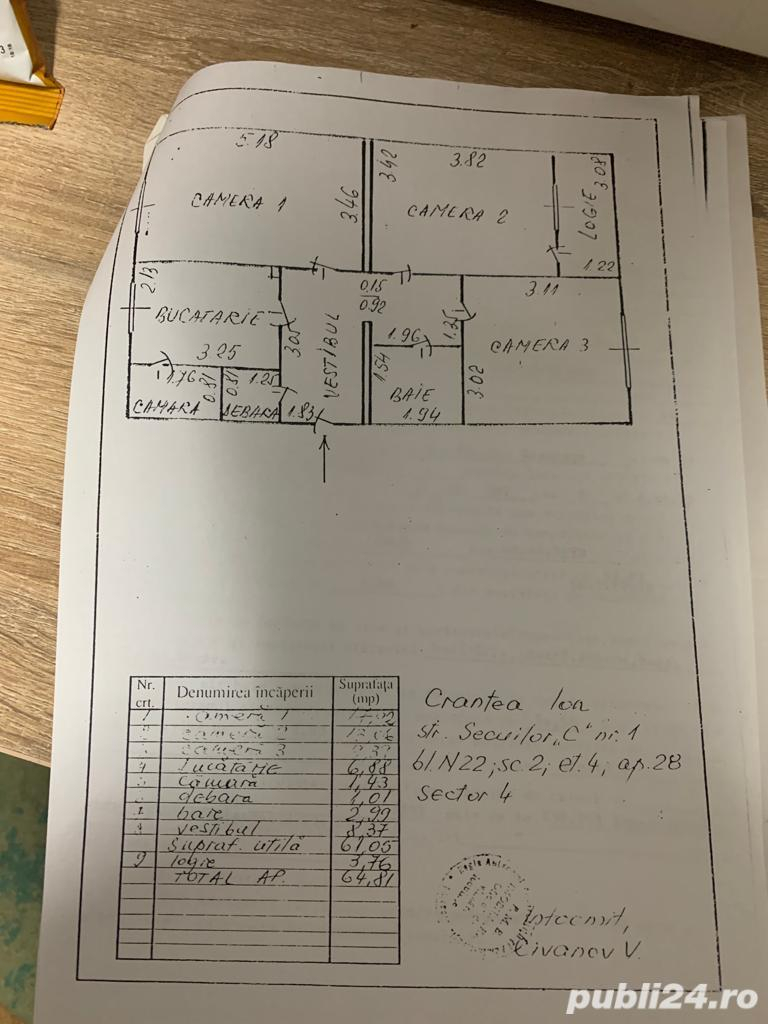 5.18
3.42
3.82
3.08
CAMERA 1
3.46
CAMERA 2
LOGIE
1.22
2.13
3.11
0.15
0.92
BUCATARIE
3.05
VESTIBUL
1.35
1.96
CAMERA 3
3.25
1.54
3.02
1.76
0.81
0.81
1.25
BAIE
CAMARA
DEBARA
1.83
1.94
Nr. crt.
Denumirea încăperii
Suprafaţa (mp)
1 cameră 1
2 cameră 2
cameră 3
4 bucătărie 6,88
5 Cămară 1,43
debara 1,01
baie 2,99
vestibul 8,37
Supraf. utilă 61,05
9 logie 3,76
TOTAL AP. 64,81
Crantea Ion
str. Secuilor „C" nr. 1
bl. N22; sc. 2; et. 4; ap. 28
sector 4
Intocmit,
Civanov V.
publi24.ro